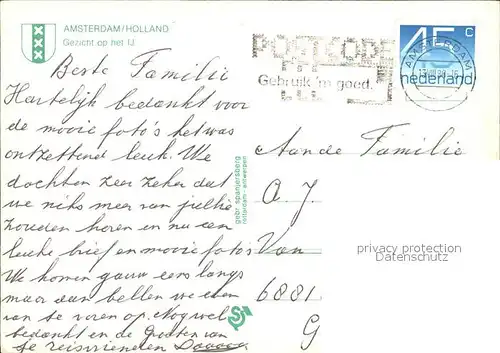 AMSTERDAM/HOLLAND
Gezicht op het IJ
POSTCODE
Gebruik 'm goed.
45 c
nederland
AMSTERDAM
Beste Familie
Hartelijk bedankt voor
de mooie foto's het was
ontzettend leuk. We
dachten zeer zeker dat
we niks meer van jullie
zouden horen en nu een
leuke brief en mooie foto's
We komen gauw eens langs
maar dan bellen we even
van te voren op. Nog wel
bedankt en de Groeten van
je reisvrienden
gebr. spanjersberg
rotterdam - antwerpen
Aan de Familie
A J
Van
6881
G
privacy protection
Datenschutz